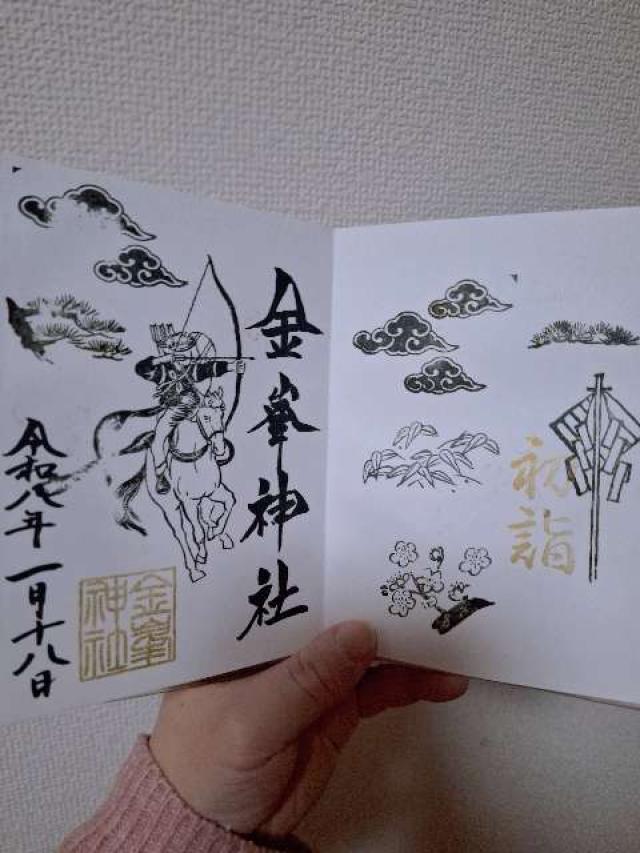 初詣
金峯神社
令和八年一月十八日
金峯
神社